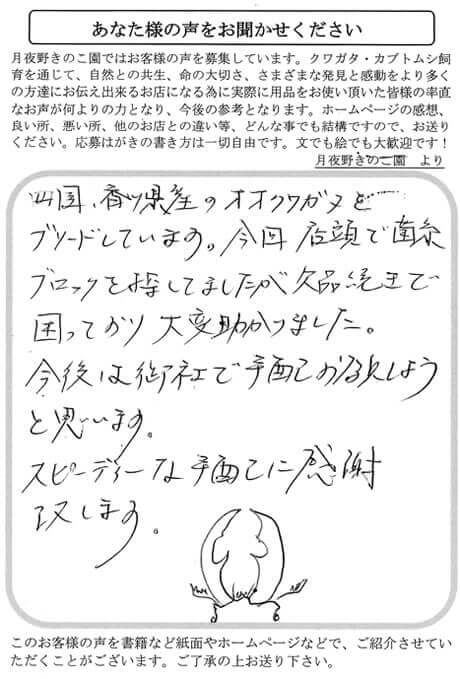 あなた様の声をお聞かせください
月夜野きのこ園ではお客様の声を募集しています。クワガタ・カブトムシ飼
育を通じて、自然との共生、命の大切さ、さまざまな発見と感動をより多く
の方達にお伝え出来るお店になる為に実際に用品をお使い頂いた皆様の率直
なお声が何よりの力となり、今後の参考となります。ホームページの感想、
良い所、悪い所、他のお店との違い等、どんな事でも結構ですので、お送り
ください。応募はがきの書き方は一切自由です。文でも絵でも大歓迎です！
月夜野きのこ園 より
四国、香川県産のオオクワガタを
ブリードしています。今回店頭で菌糸
ブロックを探してましたが欠品続きで
困っており大変助かりました。
今後は御社で手配をお願いしよう
と思います。
スピーディーな手配に感謝
致します。
このお客様の声を書籍など紙面やホームページなどで、ご紹介させてい
ただくことがございます。ご了承の上お送り下さい。